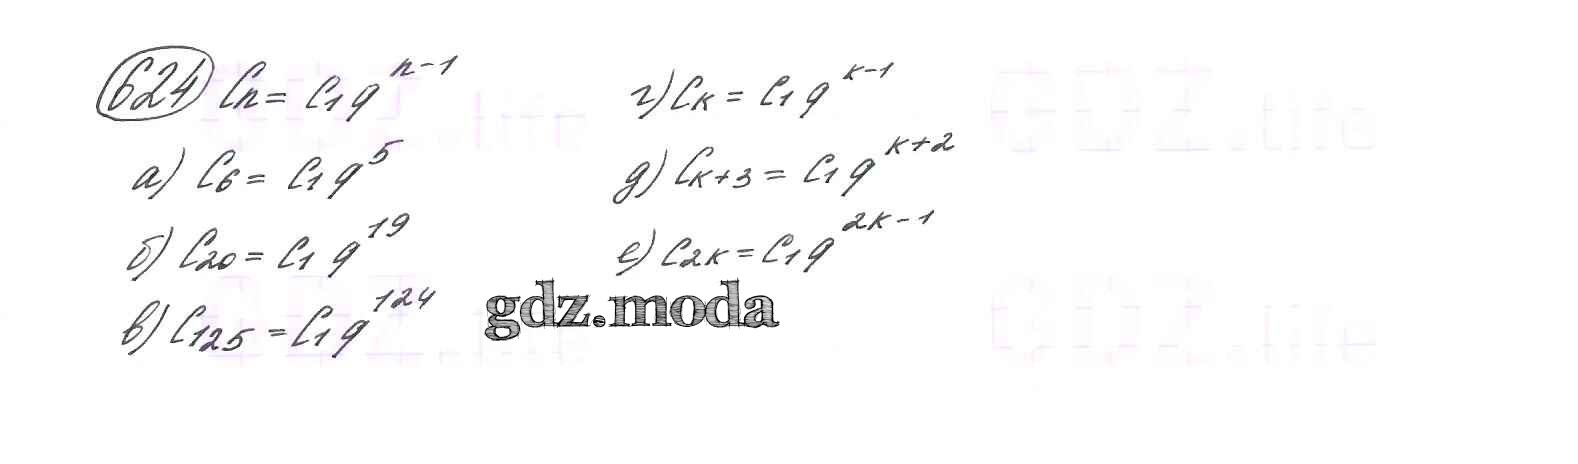 624 Cn = C1 q^n-1
а) C6 = C1 q^5
б) C20 = C1 q^19
в) C125 = C1 q^124
г) Cк = C1 q^к-1
д) Cк+3 = C1 q^к+2
е) C2к = C1 q^2к-1
gdz.moda
GDZ.life
GDZ.life
GDZ.life
GDZ.life